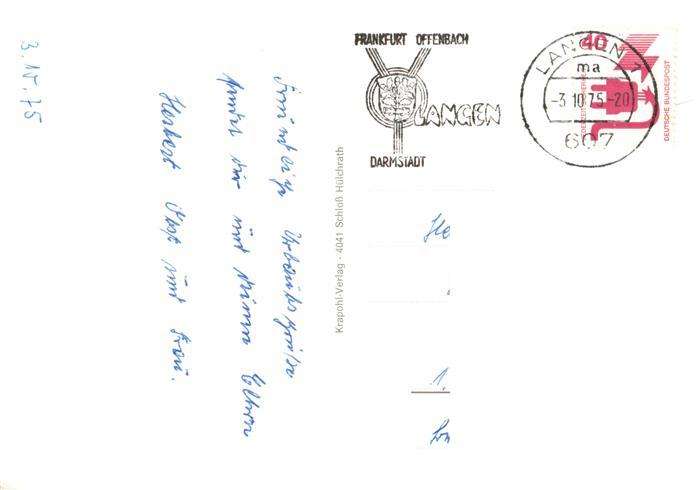 3. 10. 75
Freundliche Urlaubsgrüße
sendet dir und deinen Eltern
Herbert und Frau.
Krapohl-Verlag · 4041 Schloß Hülchrath
FRANKFURT OFFENBACH
LANGEN
DARMSTADT
LANGEN
ma
-3.10.75-20
607
40
DEUTSCHE BUNDESPOST
He
1.